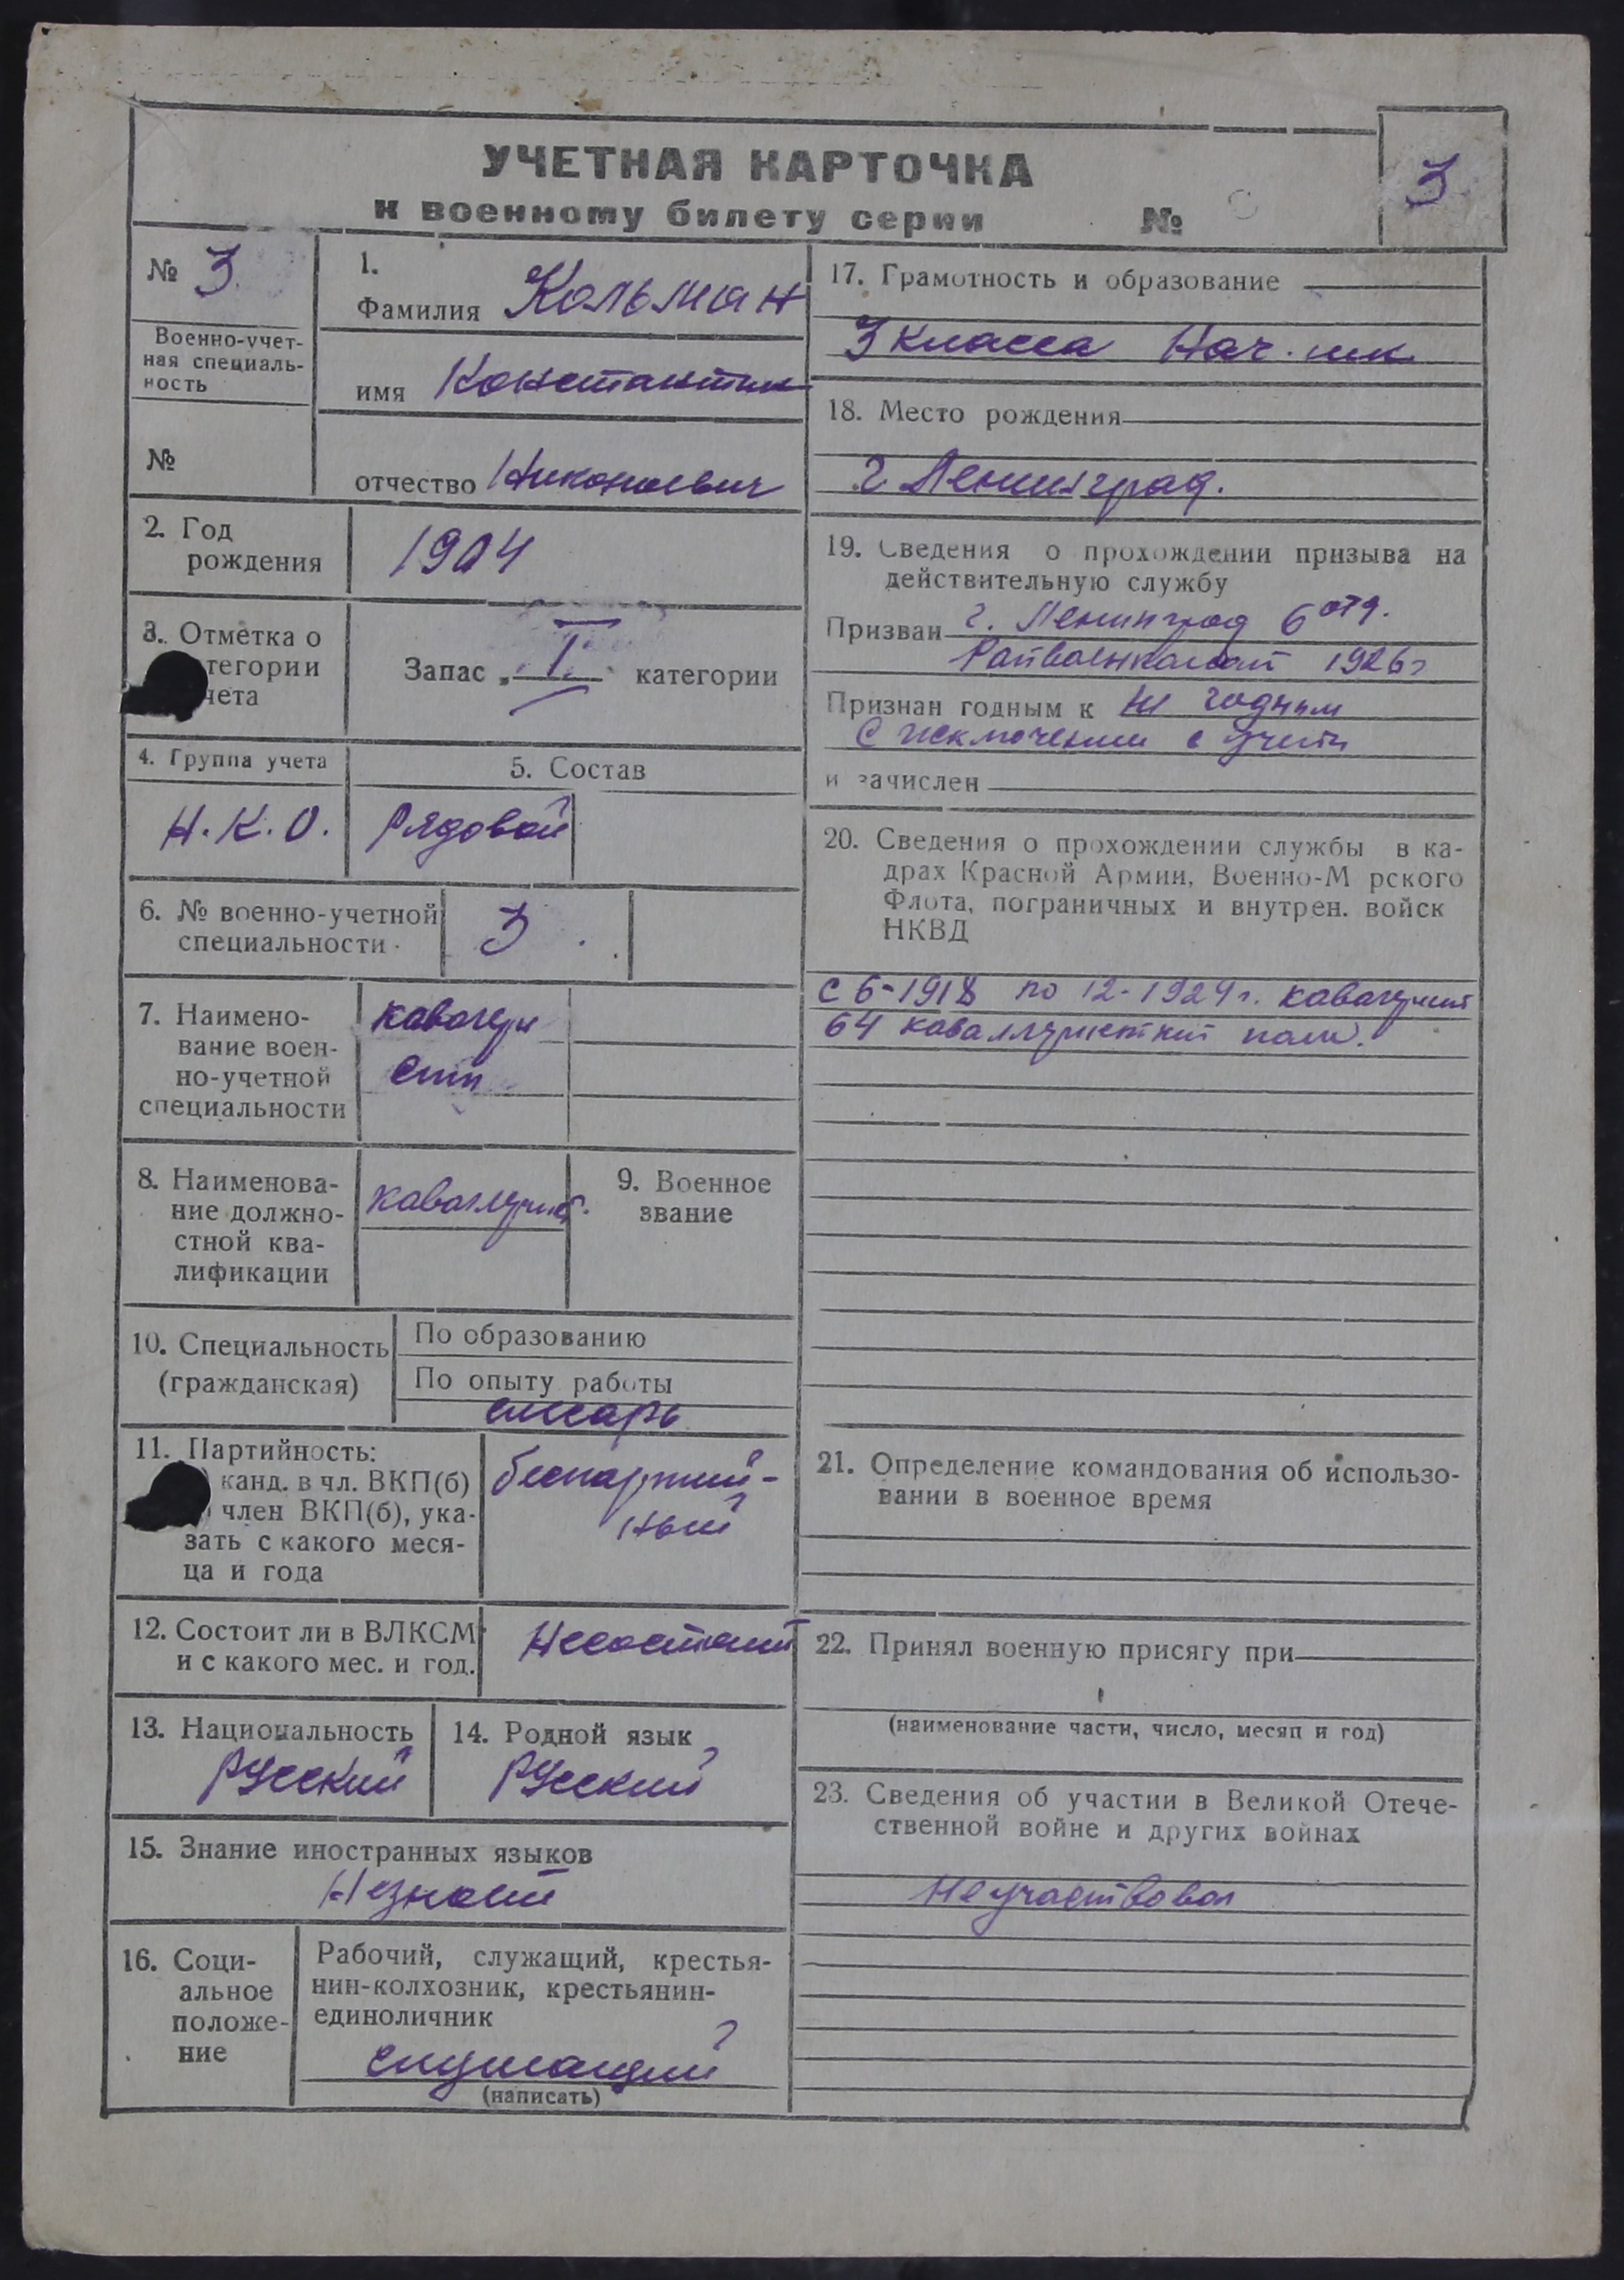 УЧЕТНАЯ КАРТОЧКА
к военному билету серии №
3
№ 3
Военно-учет-
ная специаль-
ность
№
1.
Фамилия Кольман
имя Константин
отчество Николаевич
2. Год
рождения
1904
3. Отметка о
тегории
чета
Запас „ I " категории
4. Группа учета
Н.К.О.
5. Состав
Рядовой
6. № военно-учетной
специальности
3
7. Наимено-
вание воен-
но-учетной
специальности
кавалери
сты
8. Наименова-
ние должно-
стной ква-
лификации
кавалерист.
9. Военное
звание
10. Специальность
(гражданская)
По образованию
По опыту работы
слесарь
11. Партийность:
) канд. в чл. ВКП(б)
) член ВКП(б), ука-
зать с какого меся-
ца и года
беспартий-
ный
12. Состоит ли в ВЛКСМ
и с какого мес. и год.
Несостоит
13. Национальность
Русский
14. Родной язык
Русский
15. Знание иностранных языков
Незнает
16. Соци-
альное
положе-
ние
Рабочий, служащий, крестья-
нин-колхозник, крестьянин-
единоличник
служащий
(написать)
17. Грамотность и образование
3 класса Нач. шк
18. Место рождения
г Ленинград.
19. Сведения о прохождении призыва на
действительную службу
Призван г. Ленинград 6 отд.
Райвоенкомат 1926г
Признан годным к не годным
с исключением с учета
и зачислен
20. Сведения о прохождении службы в ка-
драх Красной Армии, Военно-М рского
Флота, пограничных и внутрен. войск
НКВД
с 6-1918 по 12-1924г.
64 полк.
21. Определение командования об использо-
вании в военное время
22. Принял военную присягу при
(наименование части, число, месяц и год)
23. Сведения об участии в Великой Отече-
ственной войне и других войнах
Неучаствовал